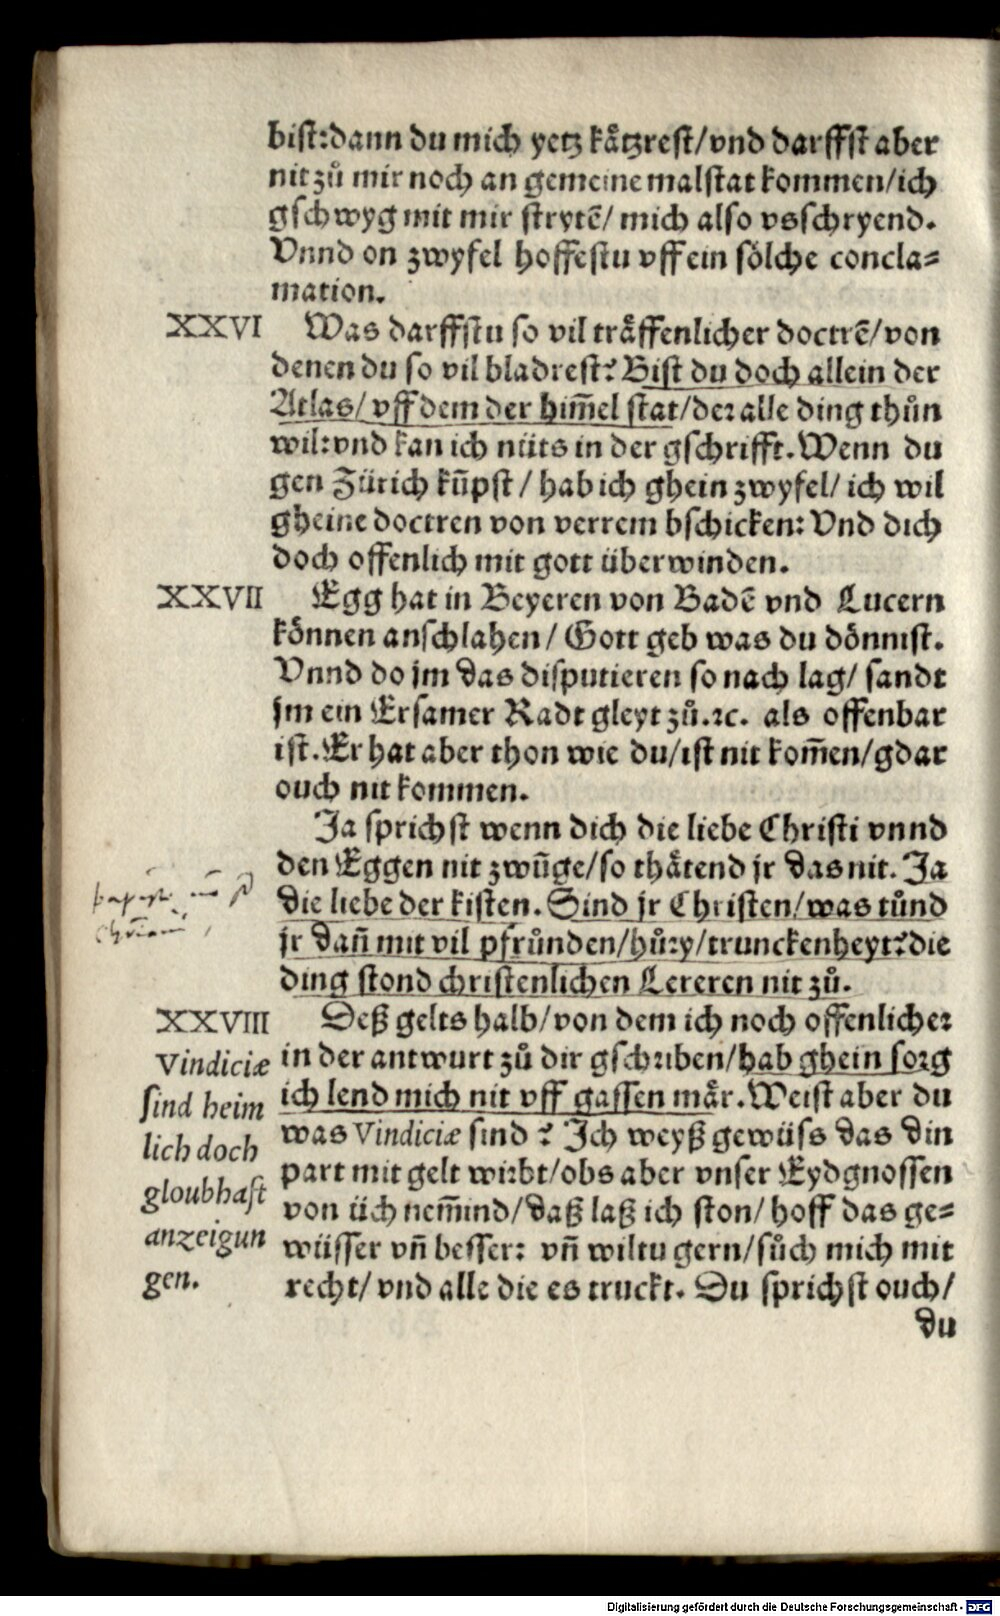 bist:dann du mich yetz kätzrest/vnd darffst aber
nit zů mir noch an gemeine malstat kommen/ich
gschwyg mit mir strytē/ mich also vsschryend.
Vnnd on zwyfel hoffestu vff ein sölche concla=
mation.
XXVI Was darffstu so vil träffenlicher doctrē/von
denen du so vil bladrest? Bist du doch allein der
Atlas/ vff dem der him̄el stat/der alle ding thůn
wil:vnd kan ich nüts in der gschrifft. Wenn du
gen Zürich kūpst / hab ich ghein zwyfel/ ich wil
gheine doctren von verrem bschicken: Vnd dich
doch offenlich mit gott überwinden.
XXVII Egg hat in Beyeren von Badē vnd Lucern
können anschlahen/ Gott geb was du dönnist.
Vnnd do jm das disputieren so nach lag/ sandt
jm ein Ersamer Radt gleyt zů.ꝛc. als offenbar
ist. Er hat aber thon wie du/ist nit kom̄en/gdar
ouch nit kommen.
Ja sprichst wenn dich die liebe Christi vnnd
den Eggen nit zwūge/so thätend jr das nit. Ja
die liebe der kisten. Sind jr Christen/was tůnd
jr dan̄ mit vil pfrůnden/hůry/trunckenheyt?die
ding stond christenlichen Lereren nit zů.
XXVIII Deß gelts halb/von dem ich noch offenlicher
in der antwurt zů dir gschriben/hab ghein sorg
ich lend mich nit vff gassen mär. Weist aber du
was Vindiciæ sind ? Ich weyß gewüss das din
part mit gelt wirbt/obs aber vnser Eydgnossen
von üch nem̄ind/daß laß ich ston/ hoff das ge=
wüsser vn̄ besser: vn̄ wiltu gern/sůch mich mit
recht/ vnd alle die es truckt. Du sprichst ouch/
du
Vindiciæ
sind heim
lich doch
gloubhaft
anzeigun
gen.
Digitalisierung gefördert durch die Deutsche Forschungsgemeinschaft - DFG